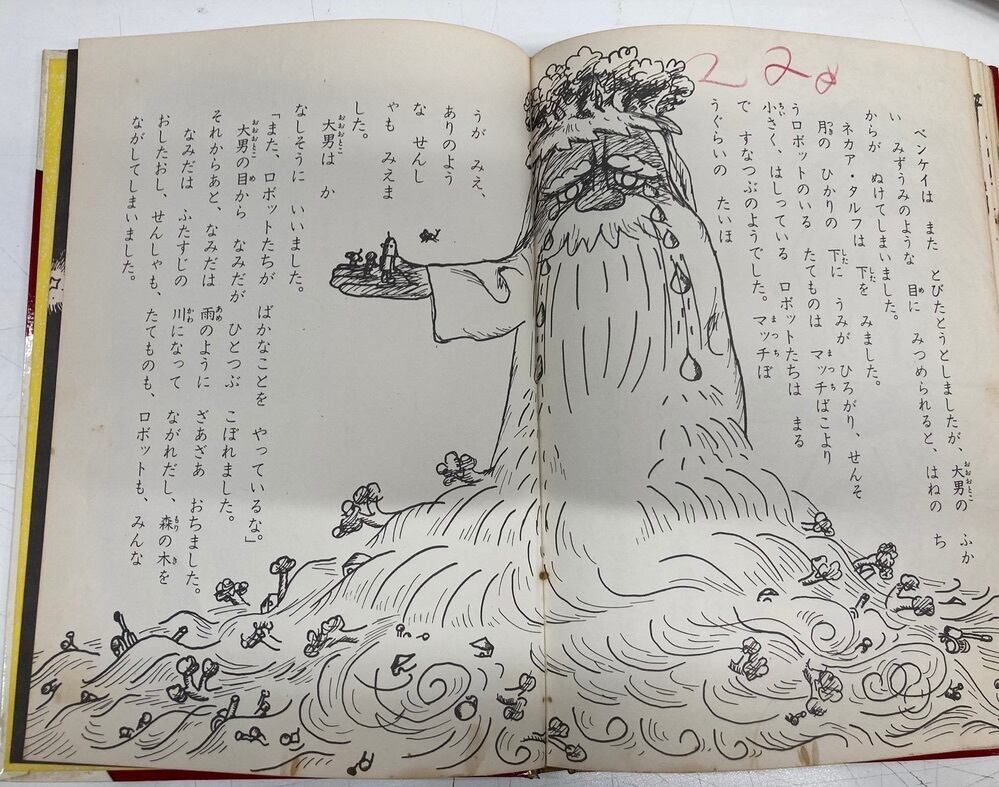 ベンケイは また とびたとうとしましたが、大男の ふか
い みずうみのような 目に みつめられると、はねの ち
からが ぬけてしまいました。
ネカア・タルフは 下を みました。
月の ひかりの 下に うみが ひろがり、せんそ
うロボットのいる たてものは マッチばこより
小さく、はしっている ロボットたちは まる
で すなつぶのようでした。マッチぼ
うぐらいの たいほ
うが みえ、
ありのよう
な せんし
ゃも みえま
した。
大男は か
なしそうに いいました。
「また、ロボットたちが ばかなことを やっているな。」
大男の目から なみだが ひとつぶ こぼれました。
それからあと、なみだは 雨のように ざあざあ おちました。
なみだは ふたすじの 川になって ながれだし、森の木を
おしたおし、せんしゃも、たてものも、ロボットも、みんな
ながしてしまいました。